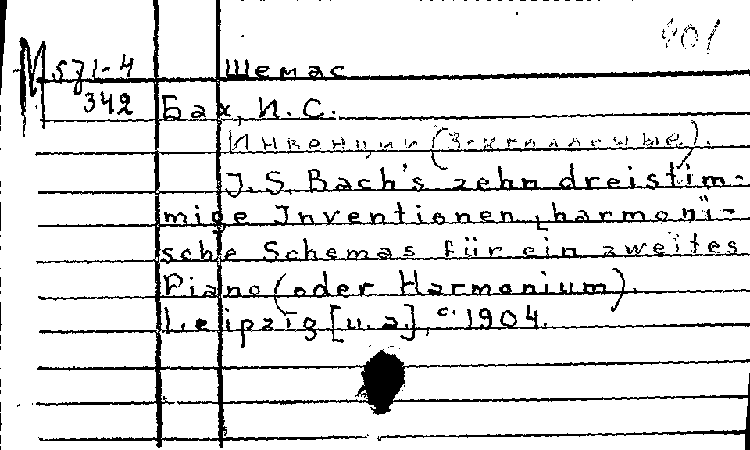 401
М 571-4 Шемас
342 Бах, И. С.
Инвенции (3-хголосные).
J. S. Bach's zehn dreistim-
mige Inventionen, harmoni-
sche Schemas für ein zweites
Piano (oder Harmonium).
Leipzig [u. a.], c. 1904.